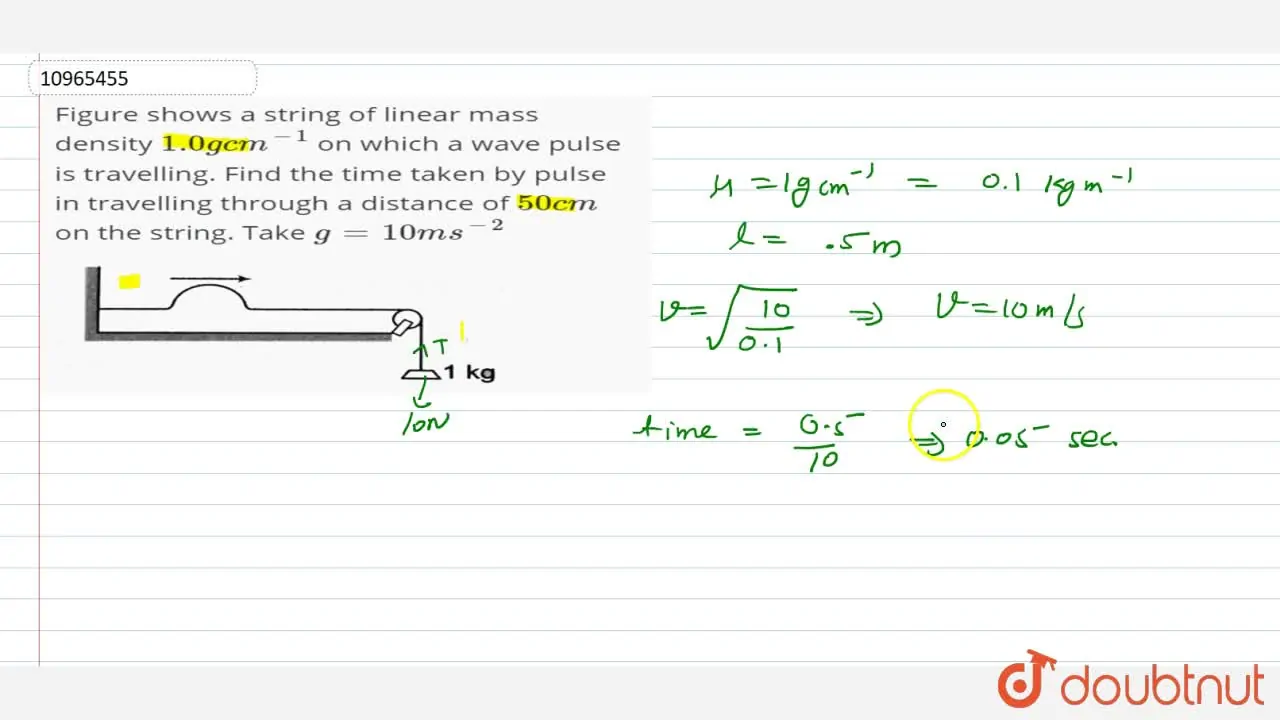 10965455
Figure shows a string of linear mass
density 1.0gcm⁻¹ on which a wave pulse
is travelling. Find the time taken by pulse
in travelling through a distance of 50cm
on the string. Take g = 10ms⁻²
T
1 kg
10N
μ = 1g cm⁻¹ = 0.1 kg m⁻¹
l = .5 m
v = √(10/0.1) ⇒ v = 10 m/s
time = 0.5/10 ⇒ 0.05 sec.
doubtnut